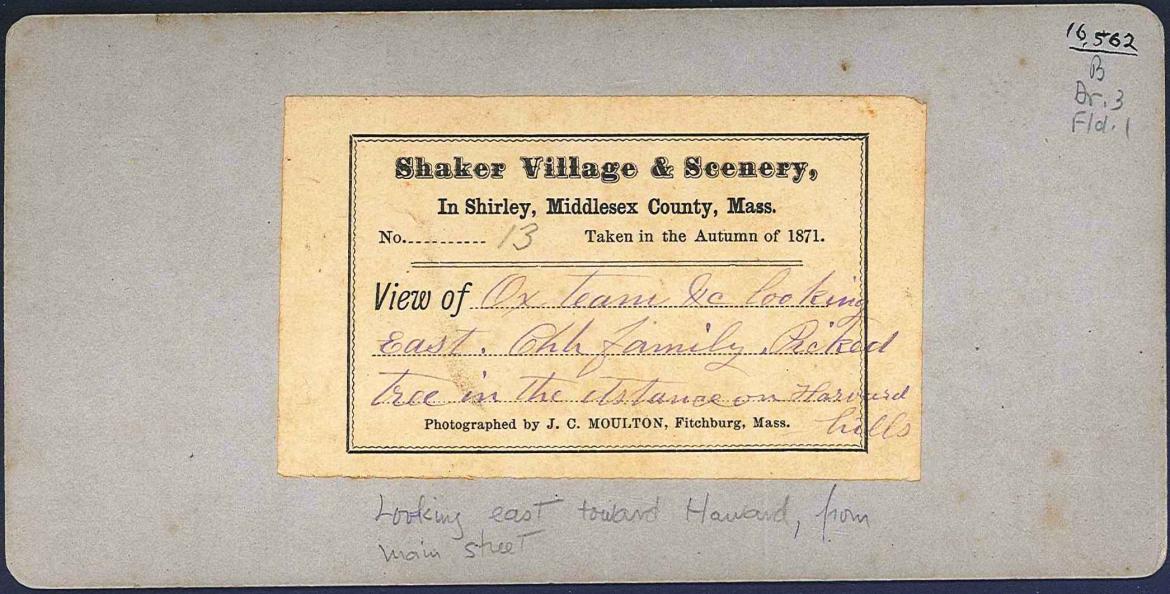 16,562
B
Dr. 3
Fld. 1
Shaker Village & Scenery,
In Shirley, Middlesex County, Mass.
No.......... 13 Taken in the Autumn of 1871.
View of Ox team &c looking
East. Chh family. Picked
tree in the distance on Harvard
hills
Photographed by J. C. MOULTON, Fitchburg, Mass.
Looking east toward Harvard, from
main street